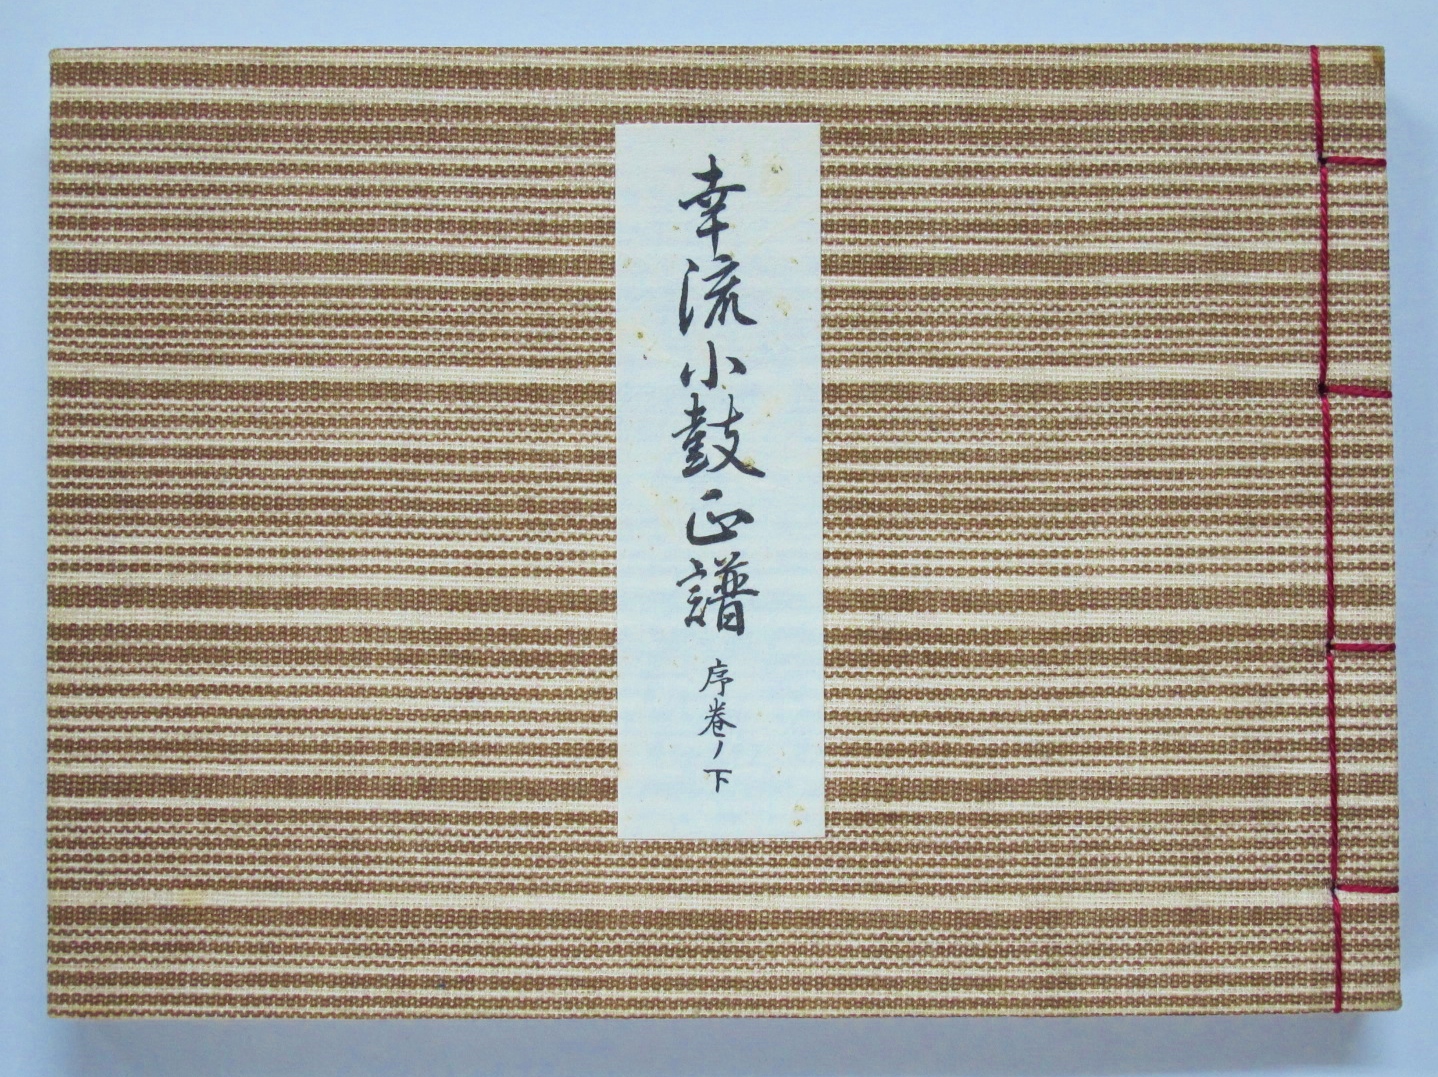 幸流小鼓正譜 序巻ノ下